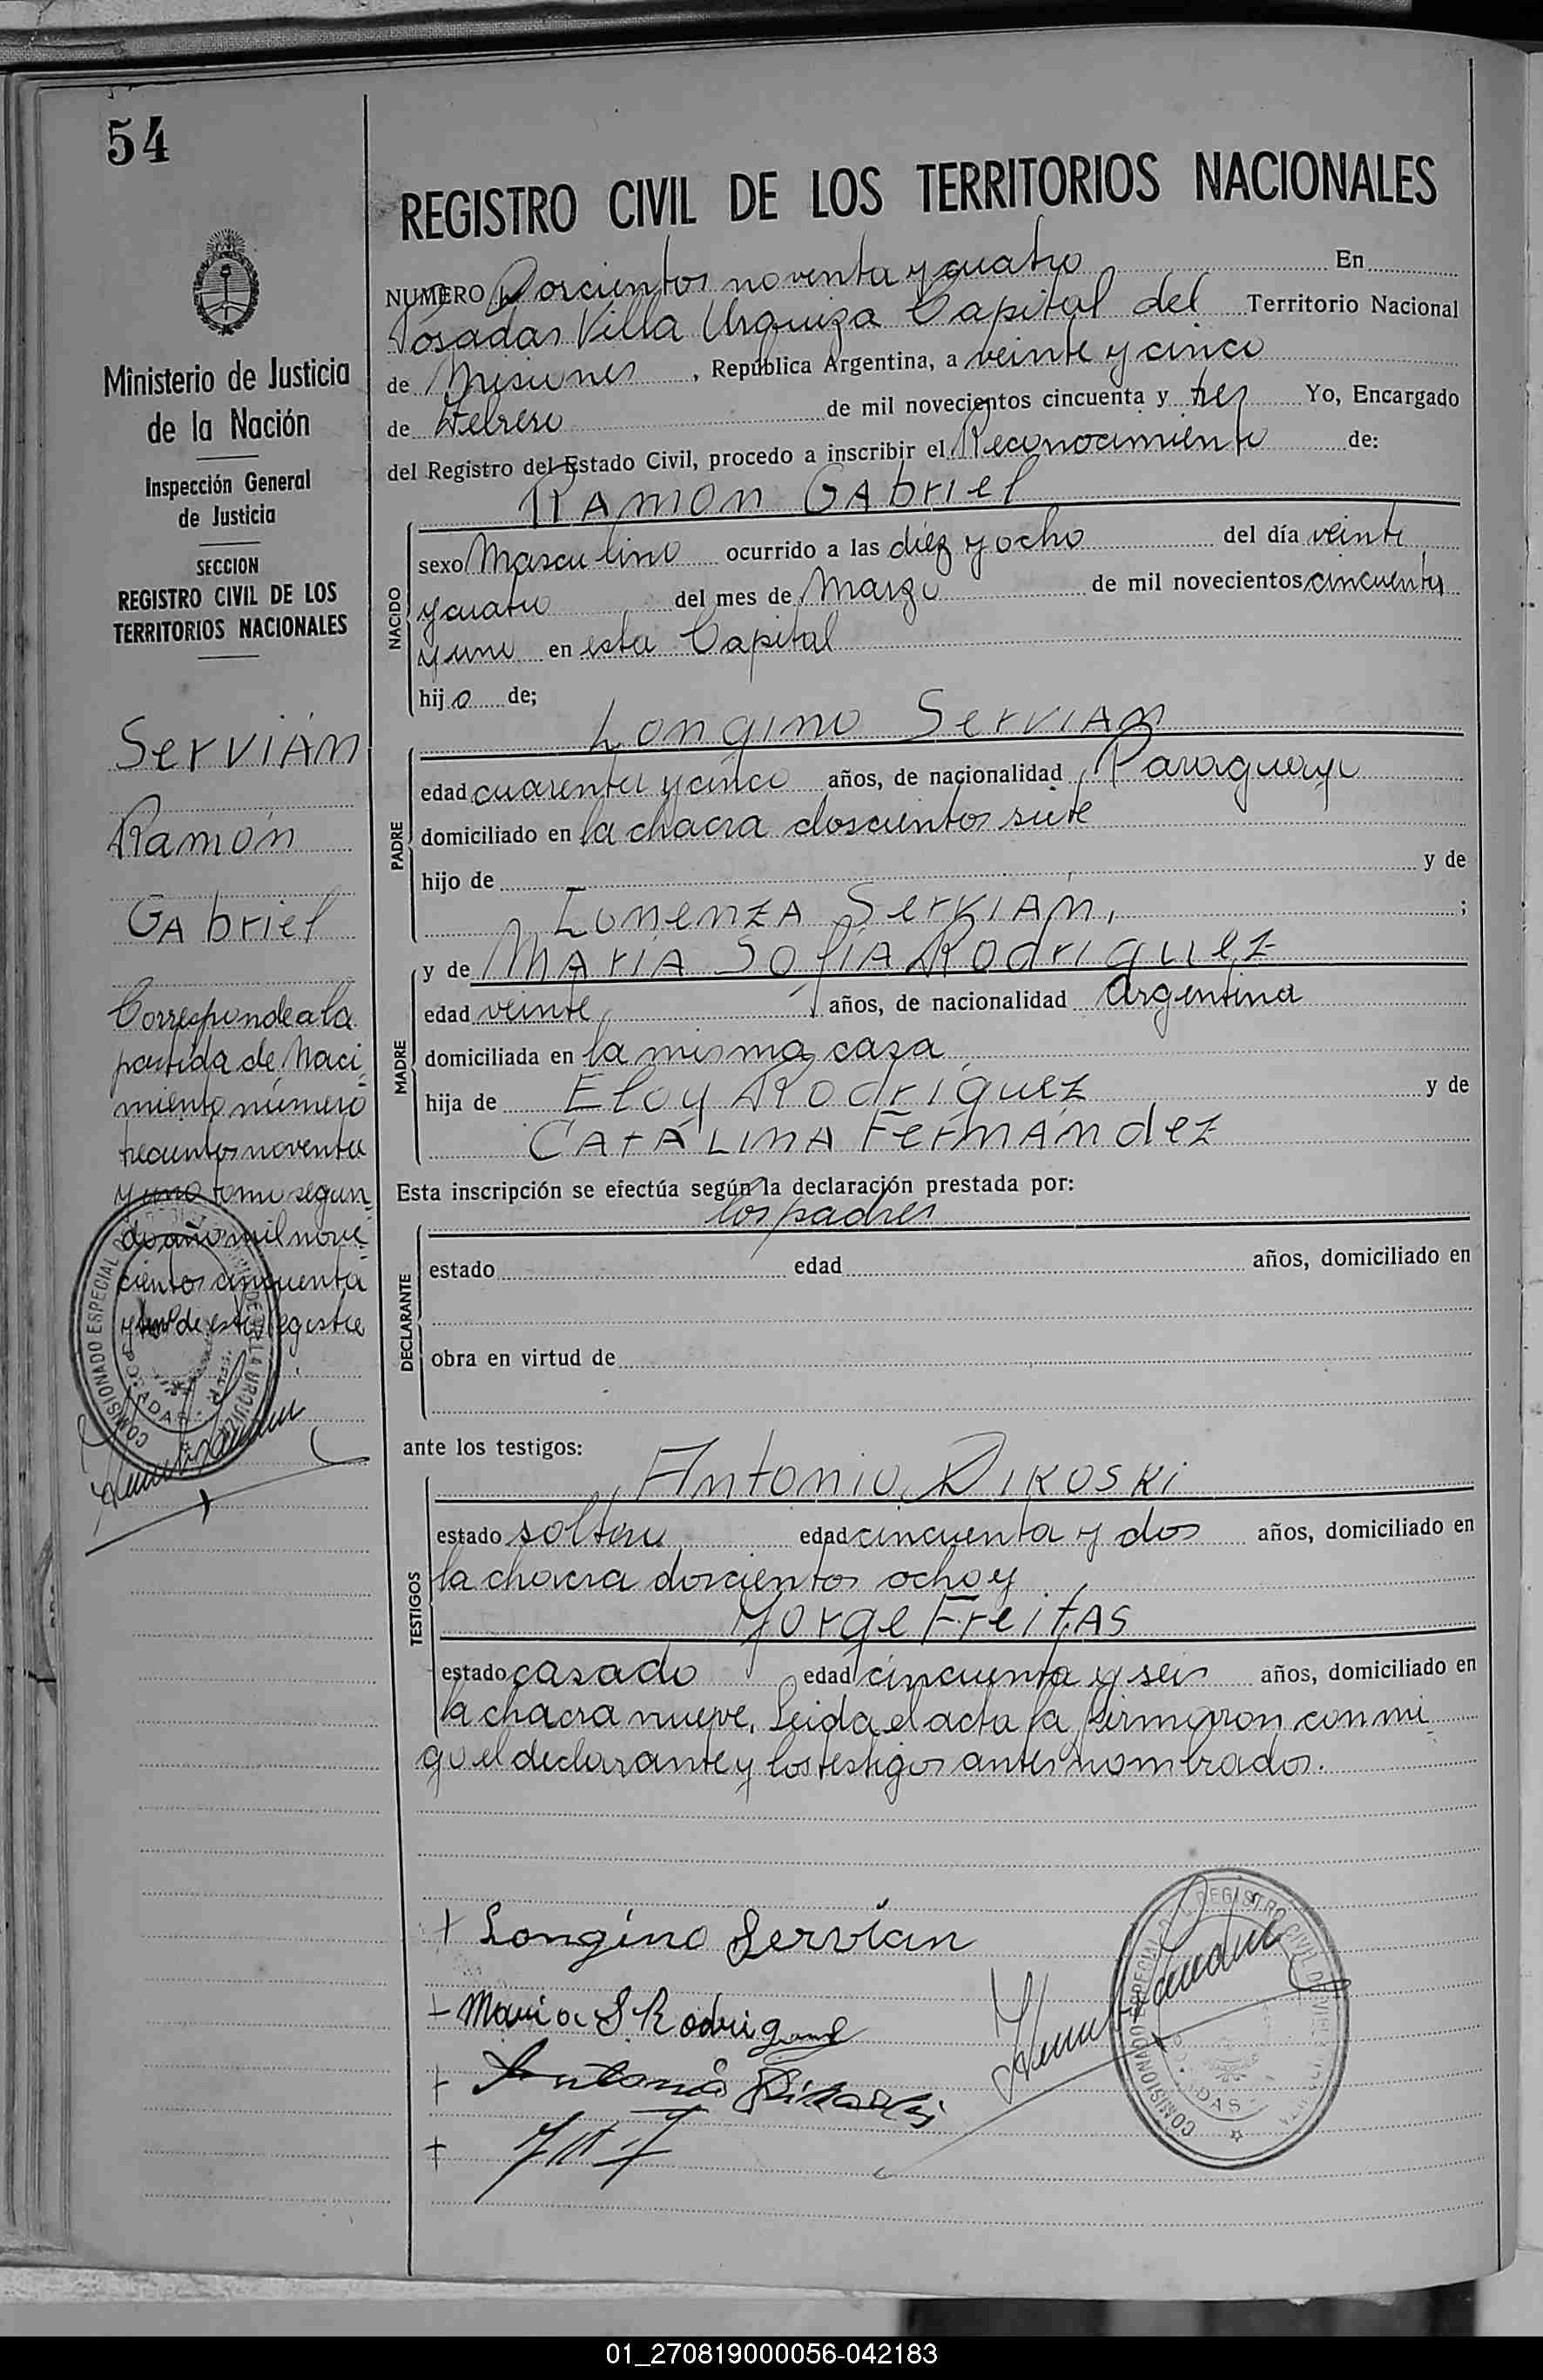 54
Ministerio de Justicia
de la Nación
Inspección General
de Justicia
SECCION
REGISTRO CIVIL DE LOS
TERRITORIOS NACIONALES
Servián
Ramón
Gabriel
Corresponde a la
partida de Naci-
miento número
trecientos noventa
y uno tomo segun-
do año mil nove-
cientos cincuenta
y uno de este Registro
REGISTRO CIVIL DE LOS TERRITORIOS NACIONALES
NUMERO Doscientos noventa y cuatro En
Posadas Villa Urquiza Capital del Territorio Nacional
de Misiones, República Argentina, a veinte y cinco
de Febrero de mil novecientos cincuenta y tres Yo, Encargado
del Registro del Estado Civil, procedo a inscribir el Reconocimiento de:
Ramón Gabriel
NACIDO
sexo Masculino ocurrido a las diez y ocho del día veinte
y cuatro del mes de Marzo de mil novecientos cincuenta
y uno en esta Capital
hijo de;
Longino Servian
PADRE
edad cuarenta y cinco años, de nacionalidad Paraguaya
domiciliado en la chacra doscientos siete
hijo de y de
Servian, ;
MADRE
y de María Sofía Rodriguez
edad veinte años, de nacionalidad Argentina
domiciliada en la misma casa
hija de Eloy Rodríguez y de
Catalina Fernández
Esta inscripción se efectúa según la declaración prestada por:
los padres
DECLARANTE
estado edad años, domiciliado en
obra en virtud de
ante los testigos:
Antonio Dikoski
TESTIGOS
estado soltero edad cincuenta y dos años, domiciliado en
la chacra doscientos ocho y
Jorge Freitas
estado casado edad cincuenta y seis años, domiciliado en
la chacra nueve. Leida el acta la firmaron conmi
go el declarante y los testigos antes nombrados.
+ Longino Servían
- Maria S Rodriguez
+ Antonio Dikoski
+
COMISIONADO ESPECIAL
POSADAS
01_270819000056-042183